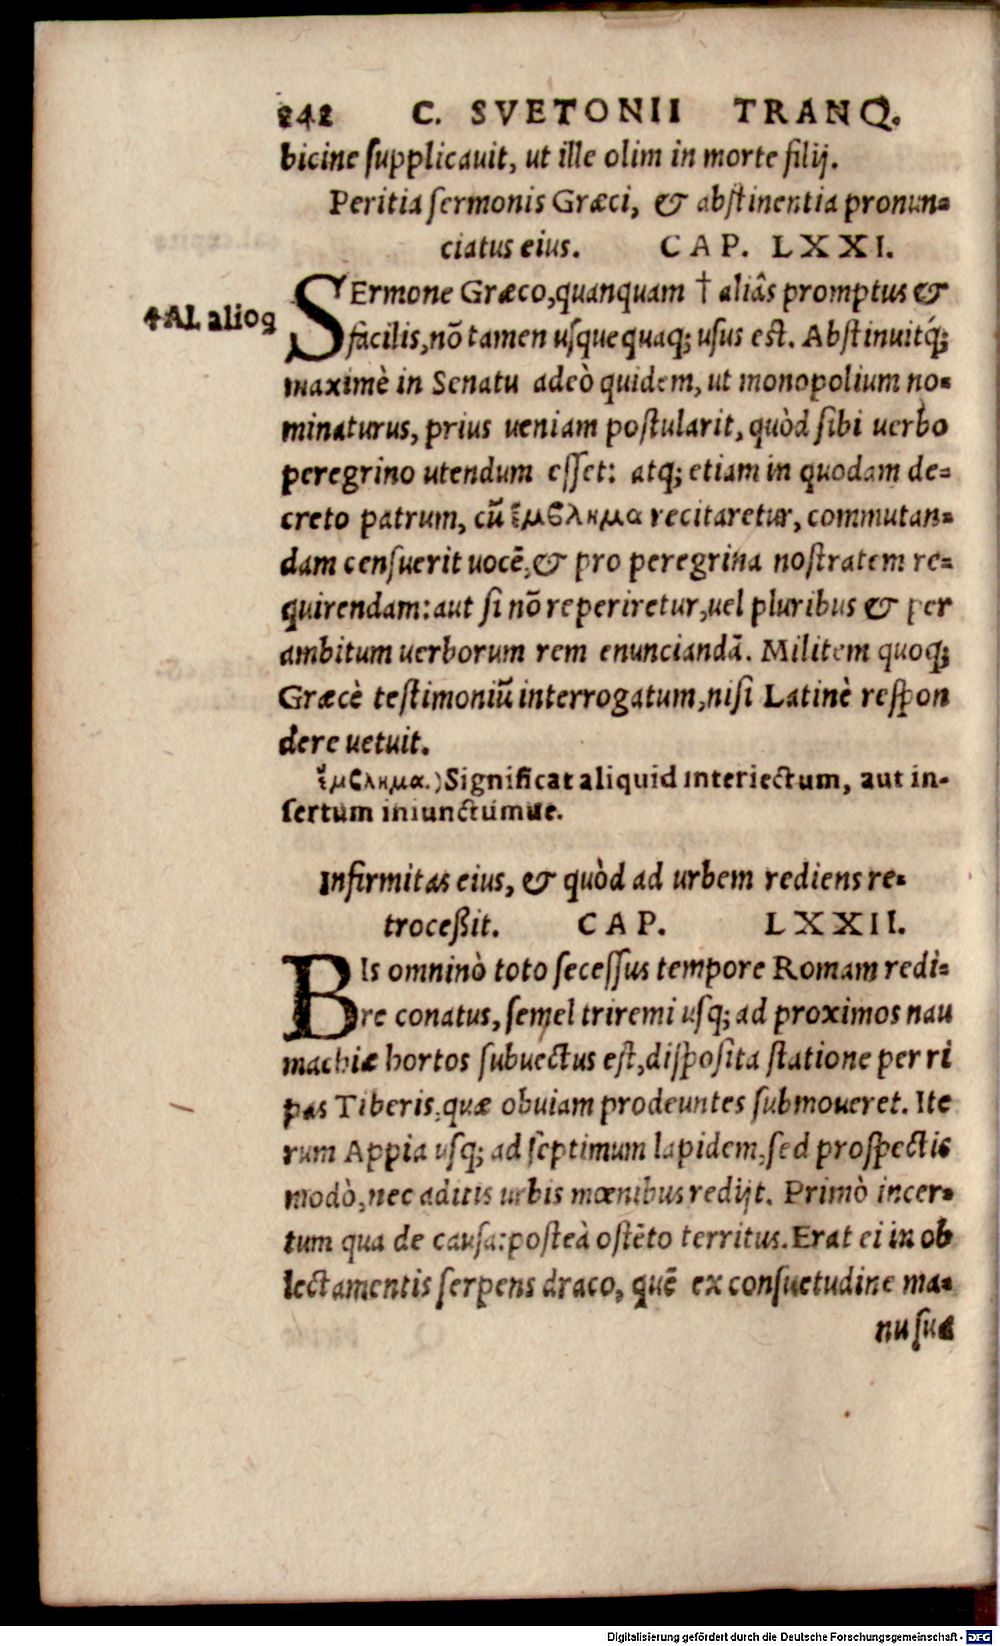 242 C. SVETONII TRANQ.
bicine ſupplicauit, ut ille olim in morte filij.
Peritia ſermonis Græci, & abſtinentia pronun-
ciatus eius. CAP. LXXI.
SErmone Græco, quanquam † aliâs promptus &
✝Al. alioq
facilis, nõ tamen uſquequaq; uſus eſt. Abſtinuitq́;
maximè in Senatu adeò quidem, ut monopolium no-
minaturus, prius ueniam poſtularit, quòd ſibi uerbo
peregrino utendum eſſet: atq; etiam in quodam de-
creto patrum, cũ ἔμβλημα recitaretur, commutan-
dam cenſuerit uocẽ, & pro peregrina noſtratem re-
quirendam: aut ſi nõ reperiretur, uel pluribus & per
ambitum uerborum rem enunciandã. Militem quoq;
Græcè teſtimoniũ interrogatum, niſi Latinè reſpon
dere uetuit.
ἔμβλημα.) Significat aliquid interiectum, aut in-
ſertum iniunctumue.
Infirmitas eius, & quòd ad urbem rediens re-
troceßit. CAP. LXXII.
BIs omninò toto ſeceſſus tempore Romam redi-
re conatus, ſemel triremi uſq; ad proximos nau
machiæ hortos ſubuectus eſt, diſpoſita ſtatione per ri
pas Tiberis, quæ obuiam prodeuntes ſubmoueret. Ite
rum Appia uſq; ad ſeptimum lapidem, ſed proſpectis
modò, nec aditis urbis mœnibus redijt. Primò incer-
tum qua de cauſa: poſteà oſtẽto territus. Erat ei in ob
lectamentis ſerpens draco, quẽ ex conſuetudine ma-
nu ſua
Digitalisierung gefördert durch die Deutsche Forschungsgemeinschaft - DFG